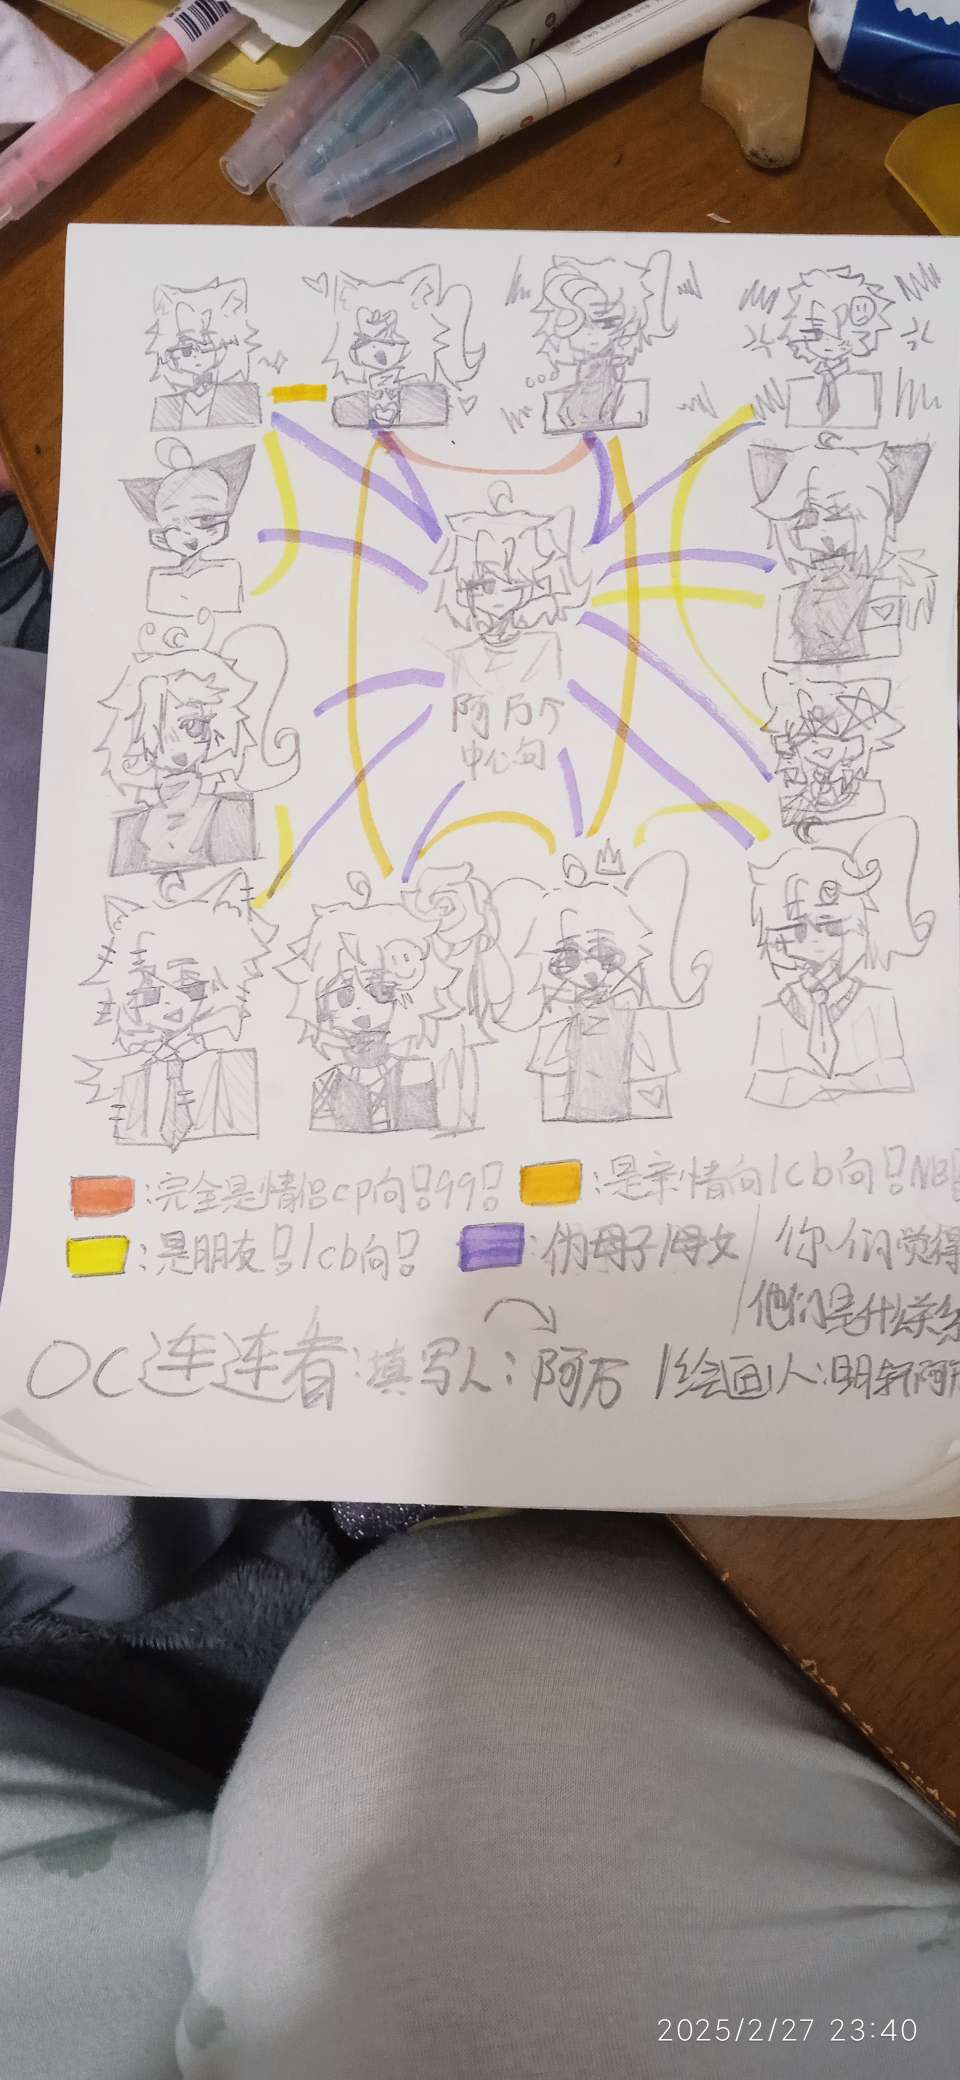 阿万个
中心向
:完全是情侣cp向!99!
:是亲情向/cb向!NB
:是朋友!/cb向!
:伪母子/母女/你们觉得
他们是什么关系
OC连连看:填写人:阿万/绘画人:明轩阿
2025/2/27 23:40